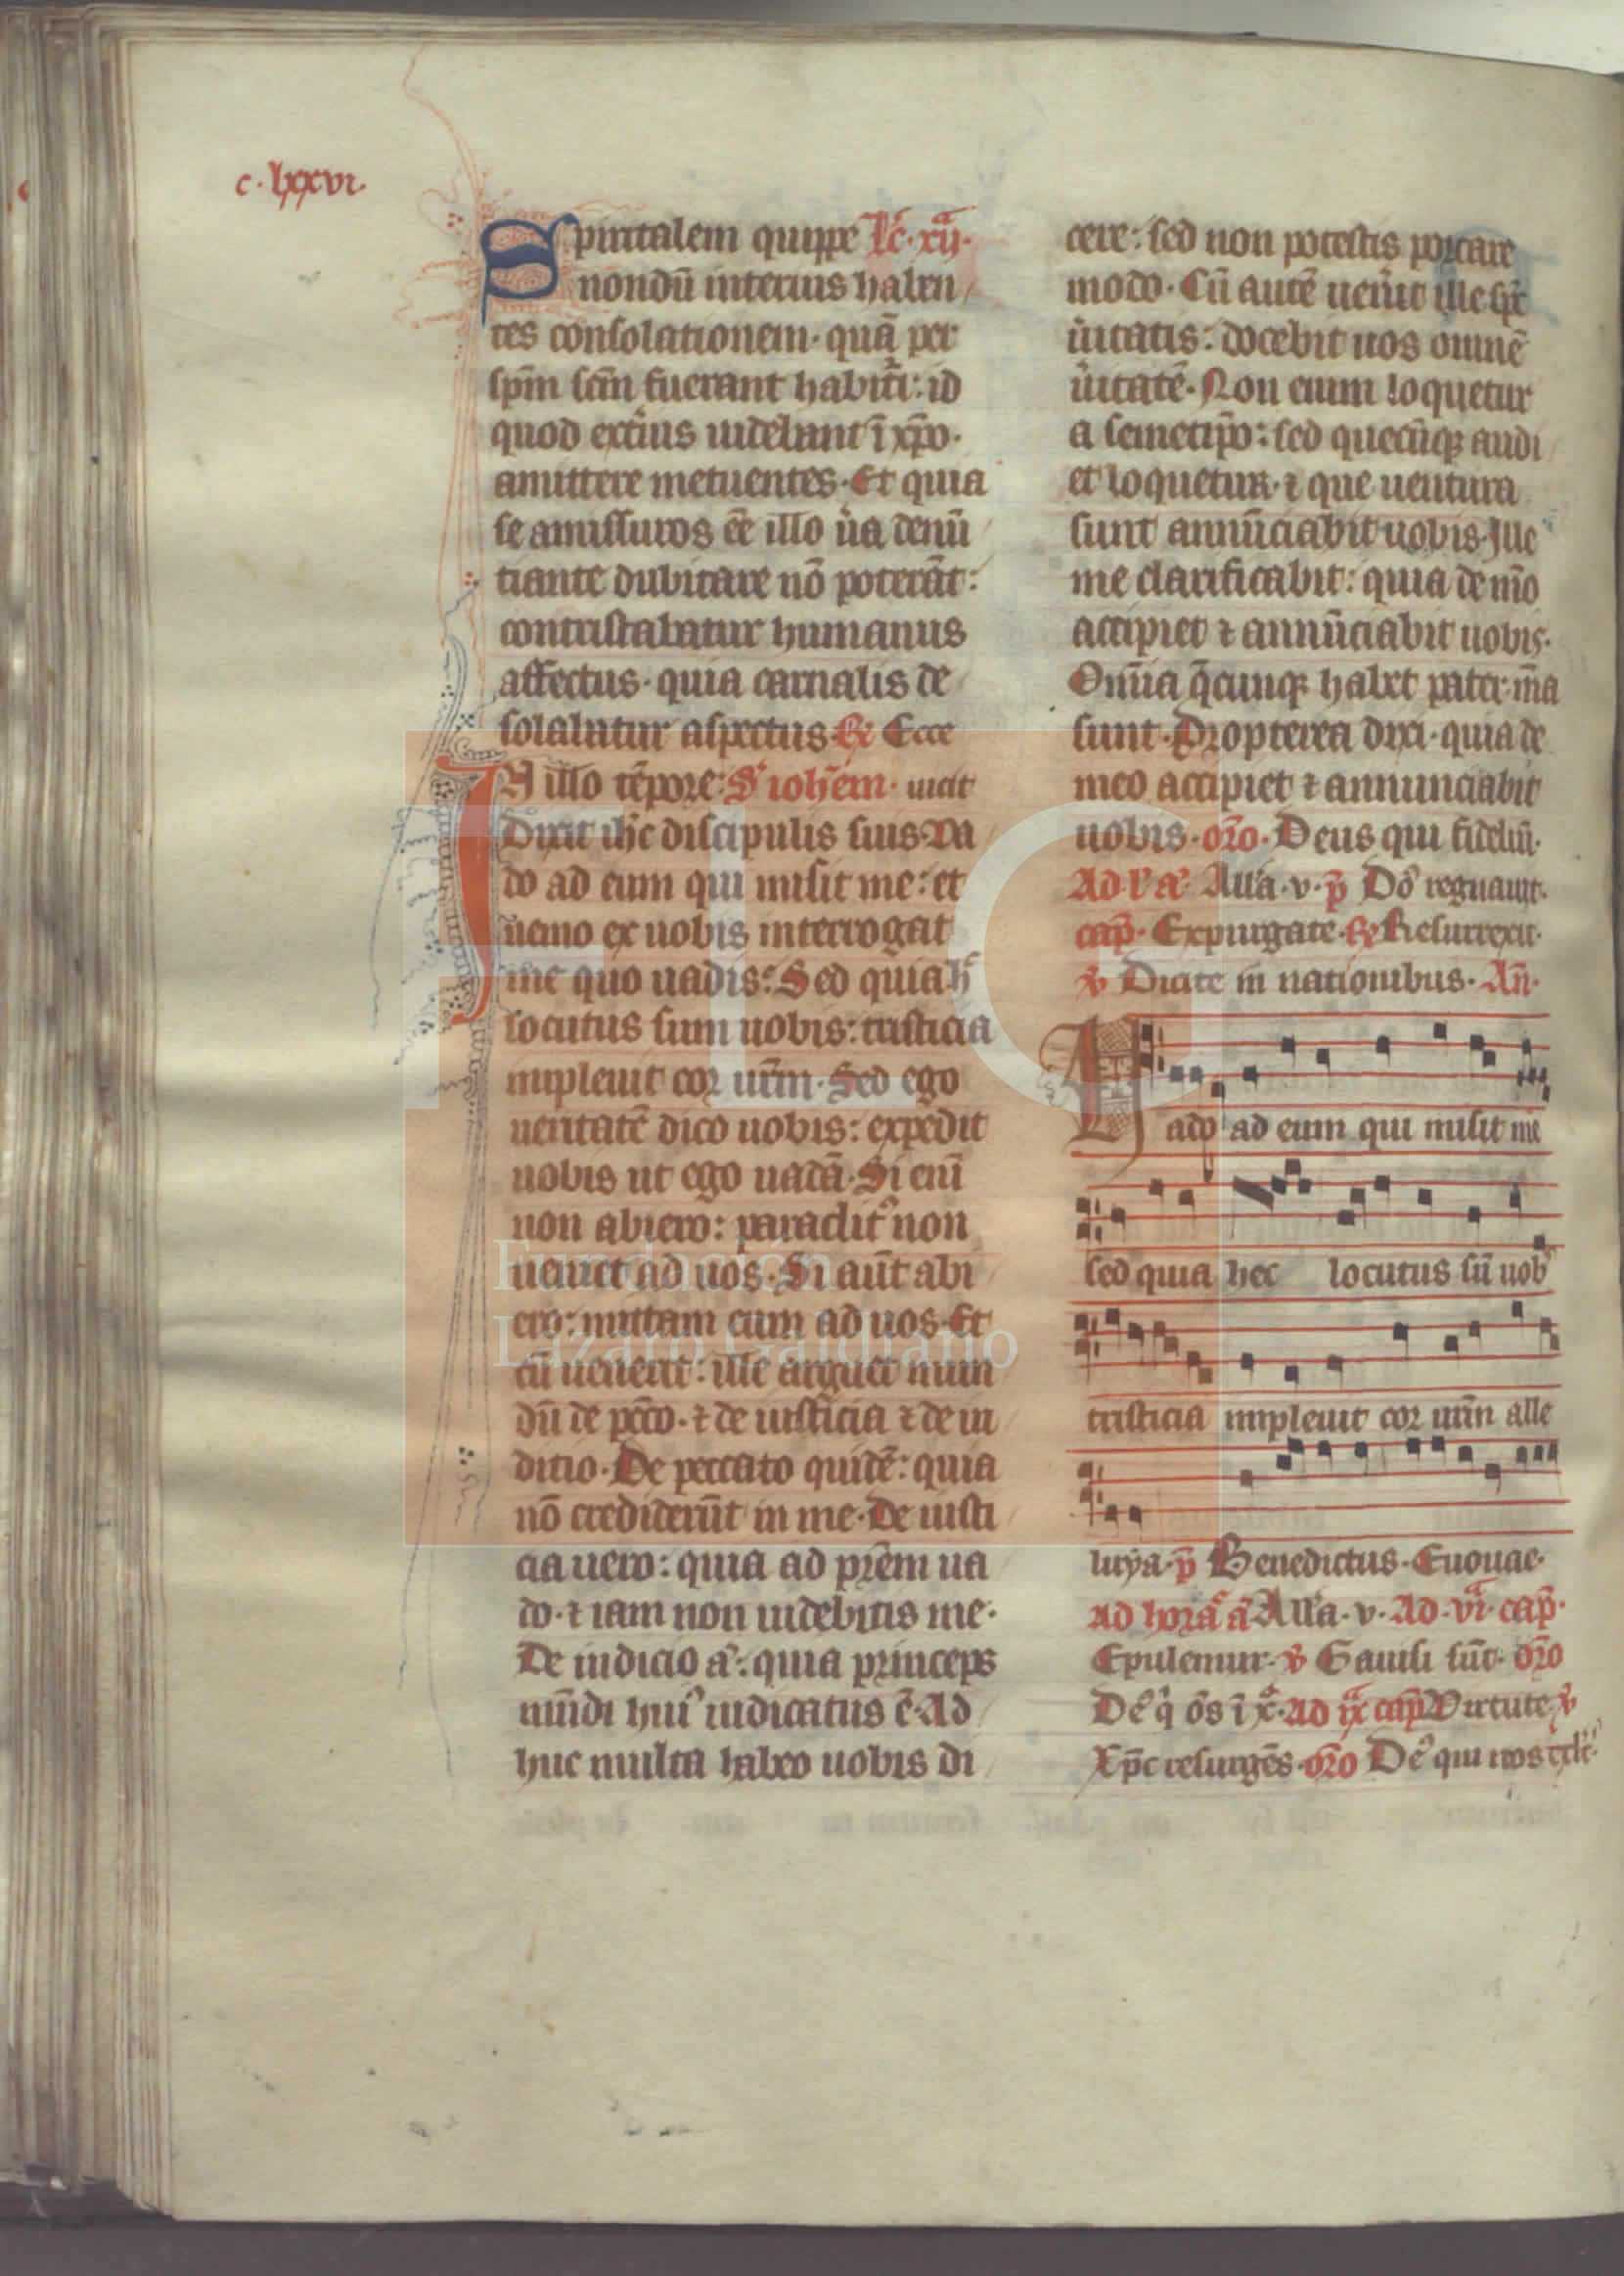 c. lxxvi.
Spiritalem quippe lc̄. xij.
nondū interius haben
tes consolationem. quā per
sp̄m sc̄m fuerant habituri: id
quod exterius uidebant ī xp̄o.
amittere metuentes. Et quia
se amissuros eē̄ illo uͥa denū
tiante dubitare nō poterāt:
contristabatur humanus
affectus. quia carnalis de
solabatur aspectus. ℟ Ecce
IN illo tēpore: S' ioh̄em. uicit
Dixit ih̄c discipulis suis. Va
do ad eum qui misit me: et
nemo ex uobis interrogat
me quo uadis: Sed quia h̄
locutus sum uobis: tristicia
impleuit cor ur̄m. Sed ego
ueritatē dico uobis: expedit
uobis ut ego uadā. Si enī
non abiero: paraclit' non
ueniet ad uos. Si aūt abi
ero: mittam eum ad uos. Et
cū uenerit: ille arguet mun
dū de pc̄co. ⁊ de iusticia ⁊ de iu
ditio. De peccato quidē: quia
nō crediderūt in me. De iusti
cia uero: quia ad pr̄em ua
do. ⁊ iam non uidebitis me.
De iudicio a': quia princeps
mūdi hui' iudicatus ē. Ad
huc multa habeo uobis di
cere: sed non potestis portare
modo. Cū autē uenͥit ille sp̄c
uͥitatis: docebit uos omnē
uͥitatē. Non enim loquetur
a semetip̄o: sed quecūqꝫ audi
et loquetur. ⁊ que uentura
sunt annūciabit uobis. Ille
me clarificabit: quia de mō
accipiet ⁊ annūciabit uobis.
Om̄ia q̄cunqꝫ habet pater. m̄a
sunt. Propterea dixi. quia de
meo accipiet ⁊ annunciabit
uobis. or̄o. Deus qui fideliū.
Ad .l'. a'. All'a. v. p̄ Do' regnauit.
cap̄. Expurgate. ℟ Resurrexit.
℣ Dicite in nationibus. Añ.
Vado ad eum qui misit me
sed quia hec locutus sū uob'
tristicia impleuit cor ur̄m alle
luya. p̄ Benedictus. Euouae.
Ad .iij.ᵃ a' All'a. v. Ad .vi.ᵃ cap̄.
Epulemur. ℣ Gauisi sūt. or̄o
De' q' os̄ ī x̄. Ad ix̄ᵃ cap̄ Virtute ℣
Xp̄c resurgēs. or̄o De' qui nos
Fundación
Lázaro Galdiano
FLG